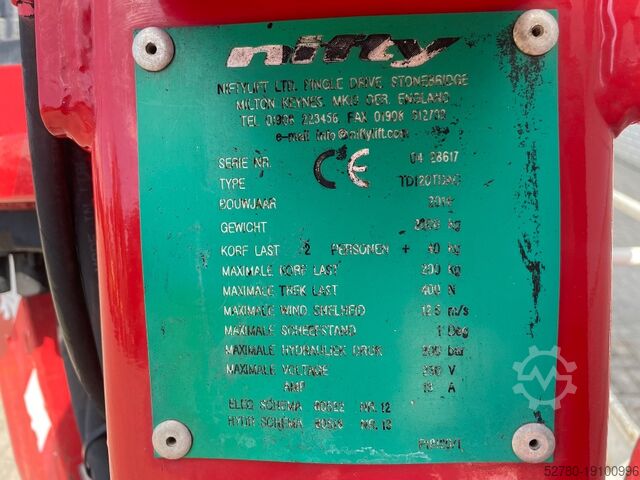 nifty
NIFTYLIFT LTD. FINGLE DRIVE, STONEBRIDGE
MILTON KEYNES, MK13 0ER. ENGLAND
TEL 01908 223456 FAX 01908 312733
e-mail: info@niftylift.com
CE
SERIE NR. 04 28617
TYPE
BOUWJAAR
GEWICHT kg
KORF LAST 2 PERSONEN + 40 kg
MAXIMALE KORF LAST 200 kg
MAXIMALE TREK LAST 400 N
MAXIMALE WIND SNELHEID 12.5 m/s
MAXIMALE SCHEEFSTAND 1 Deg
MAXIMALE HYDRAULIEK DRUK bar
MAXIMALE VOLTAGE V
AMP A
ELEC SCHEMA NR. 12
HYDR SCHEMA NR.
52780-19100996